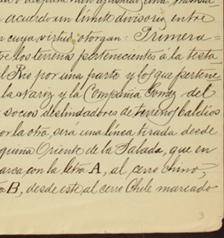 acuerdo un límite divisorio entre
cuya virtud otorgan: Primera=
tre los terrenos pertenecientes a la testa
l Río por una parte y los que pertene
la Narez y la Compañía Gomez del
socios deslindadores de terrenos baldíos
por la otra, será una línea tirada desde
quina Oriente de la Salada, que en
arca con la letra A, al cerro Chino,
a B, desde este al cerro Chile marcado
3